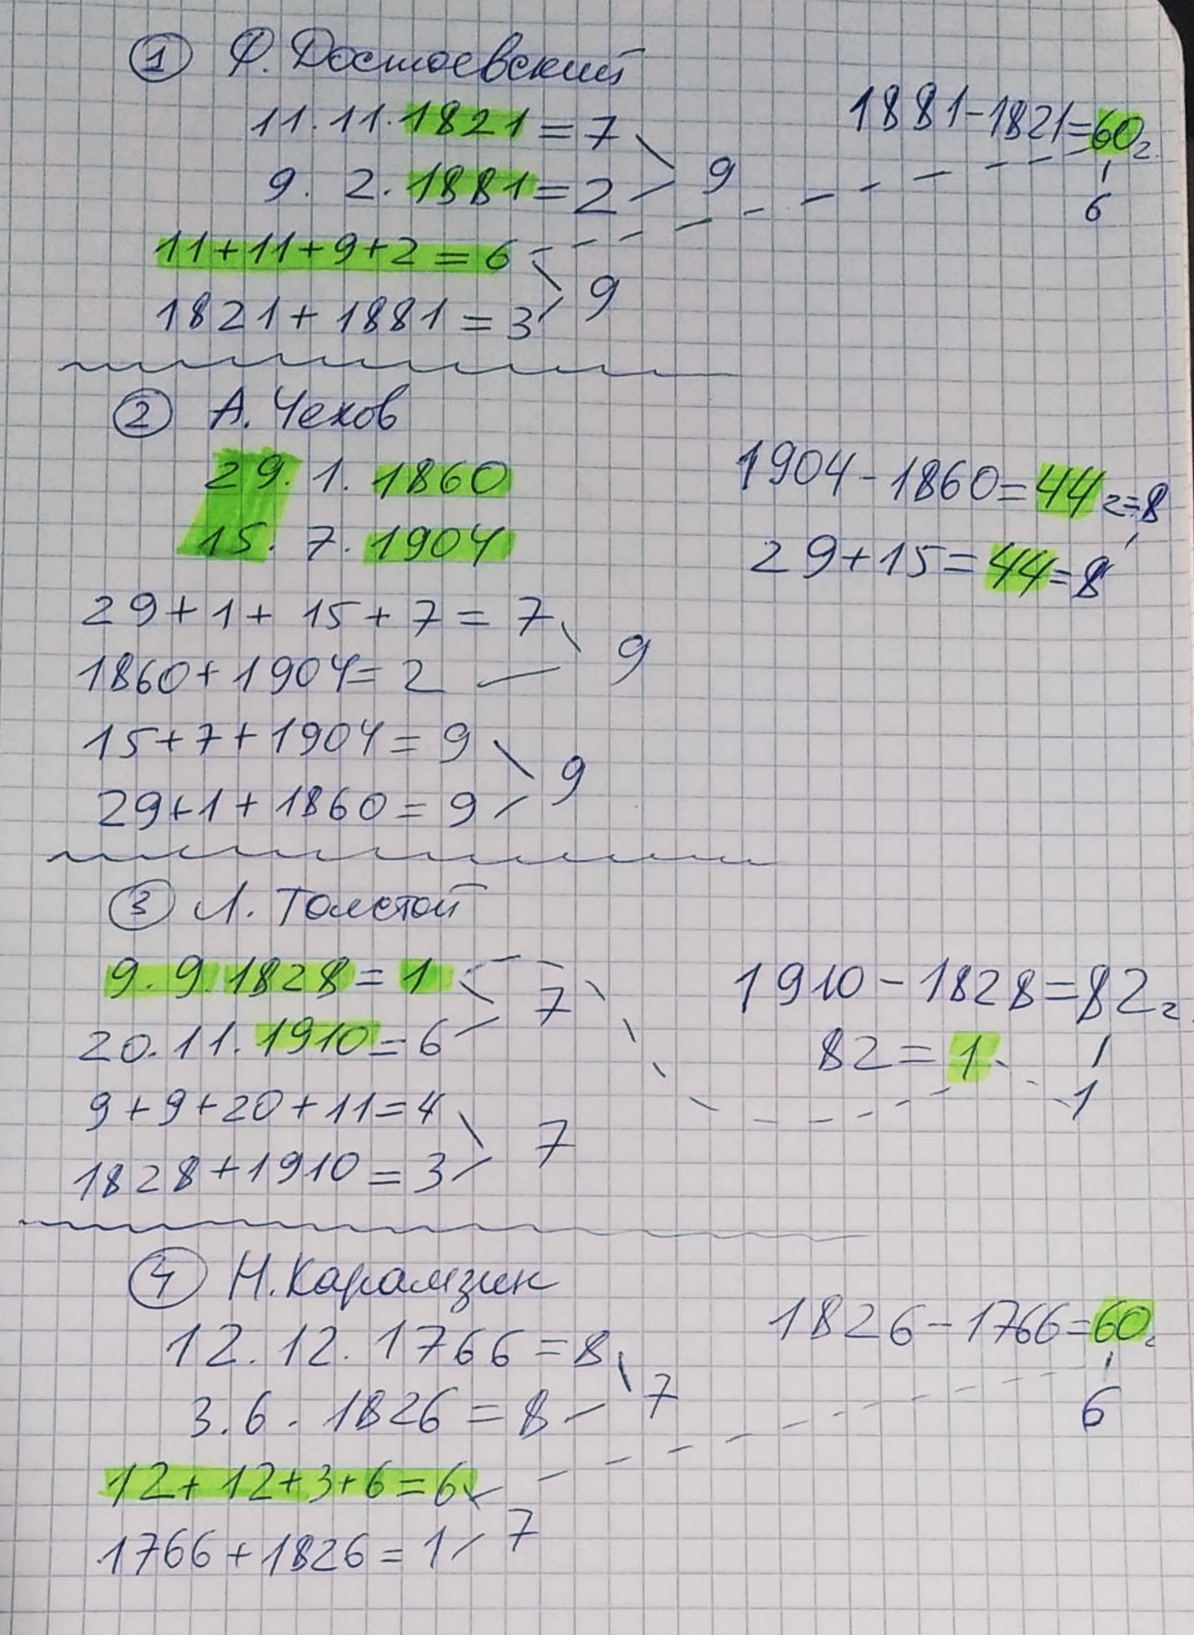 ① Ф. Достоевский
11.11.1821 = 7
9. 2. 1881 = 2
9
11+11+9+2 = 6
1821+1881 = 3
9
1881-1821=60г.
6
② А. Чехов
29. 1. 1860
15. 7. 1904
29+1+15+7 = 7
1860+1904 = 2
9
15+7+1904 = 9
29+1+1860 = 9
9
1904-1860=44г=8
29+15=44=8
③ Л. Толстой
9. 9. 1828 = 1
20.11.1910 = 6
7
9+9+20+11=4
1828+1910 = 3
7
1910-1828=82г.
82=1
1
④ Н. Карамзин
12.12.1766 = 8
3.6.1826 = 8
7
12+12+3+6=6
1766+1826=1
7
1826-1766=60г.
6